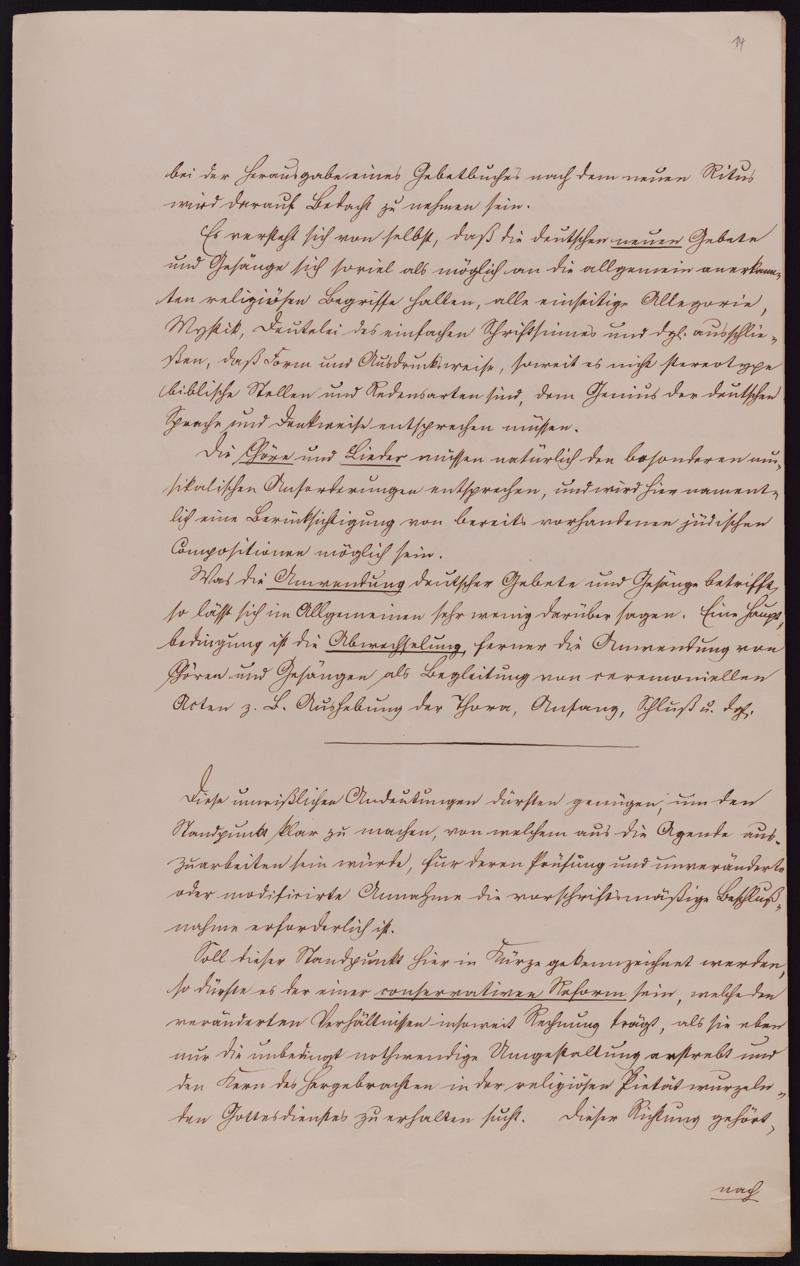 14
bei der Herausgabe eines Gebetbuches nach dem neuen Ritus
wird darauf Bedacht zu nehmen sein.
Es versteht sich von selbst, daß die deutschen neuen Gebete
und Gesänge sich soviel als möglich an die allgemein anerkann-
ten religiösen Begriffe halten, alle einseitige Allegorie,
Mystik, Deutelei des einfachen Schriftsinnes und dgl. ausschlie-
ßen, daß Form und Ausdrucksweise, soweit es nicht stereotype
biblische Stellen und Redensarten sind, dem Genius der deutschen
Sprache und Denkweise entsprechen müssen.
Die Chöre und Lieder müssen natürlich den besonderen mu-
sikalischen Anforderungen entsprechen, und wird hier nament-
lich eine Berücksichtigung von bereits vorhandenen jüdischen
Compositionen möglich sein.
Was die Anwendung deutscher Gebete und Gesänge betrifft,
so läßt sich im Allgemeinen sehr wenig darüber sagen. Eine Haupt-
bedingung ist die Abwechselung, ferner die Anwendung von
Chören und Gesängen als Begleitung von ceremoniellen
Acten z. B. Aushebung der Thora, Anfang, Schluß u. dgl.
Diese umrißlichen Andeutungen dürften genügen, um den
Standpunkt klar zu machen, von welchem aus die Agende aus-
zuarbeiten sein würde, für deren Prüfung und unveränderte
oder modificirte Annahme die vorschriftsmäßige Beschluß-
nahme erforderlich ist.
Soll dieser Standpunkt hier in Kürze gekennzeichnet werden,
so dürfte es der einer conservativen Reform sein, welche den
veränderten Verhältnissen insoweit Rechnung trägt, als sie eben
nur die unbedingt nothwendige Umgestaltung anstrebt und
den Kern des Hergebrachten in der religiösen Pietät wurzeln-
den Gottesdienstes zu erhalten sucht. Dieser Richtung gehört,
nach